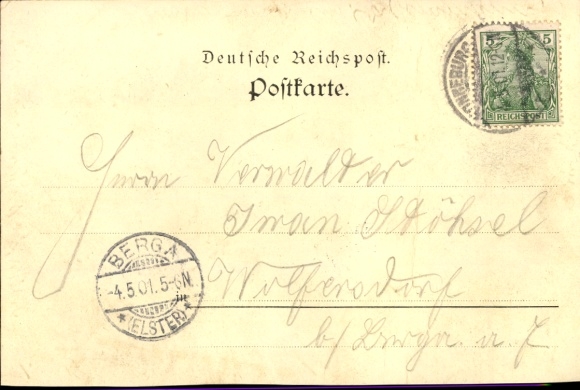 Deutsche Reichspost.
Postkarte.
5 5
REICHSPOST
Herrn Verwalter
Iwan Stöhsel
Wolfersdorf
b/ Berga a. E
BERGA
-4.5.01.5-6N.
in
*(ELSTER)*